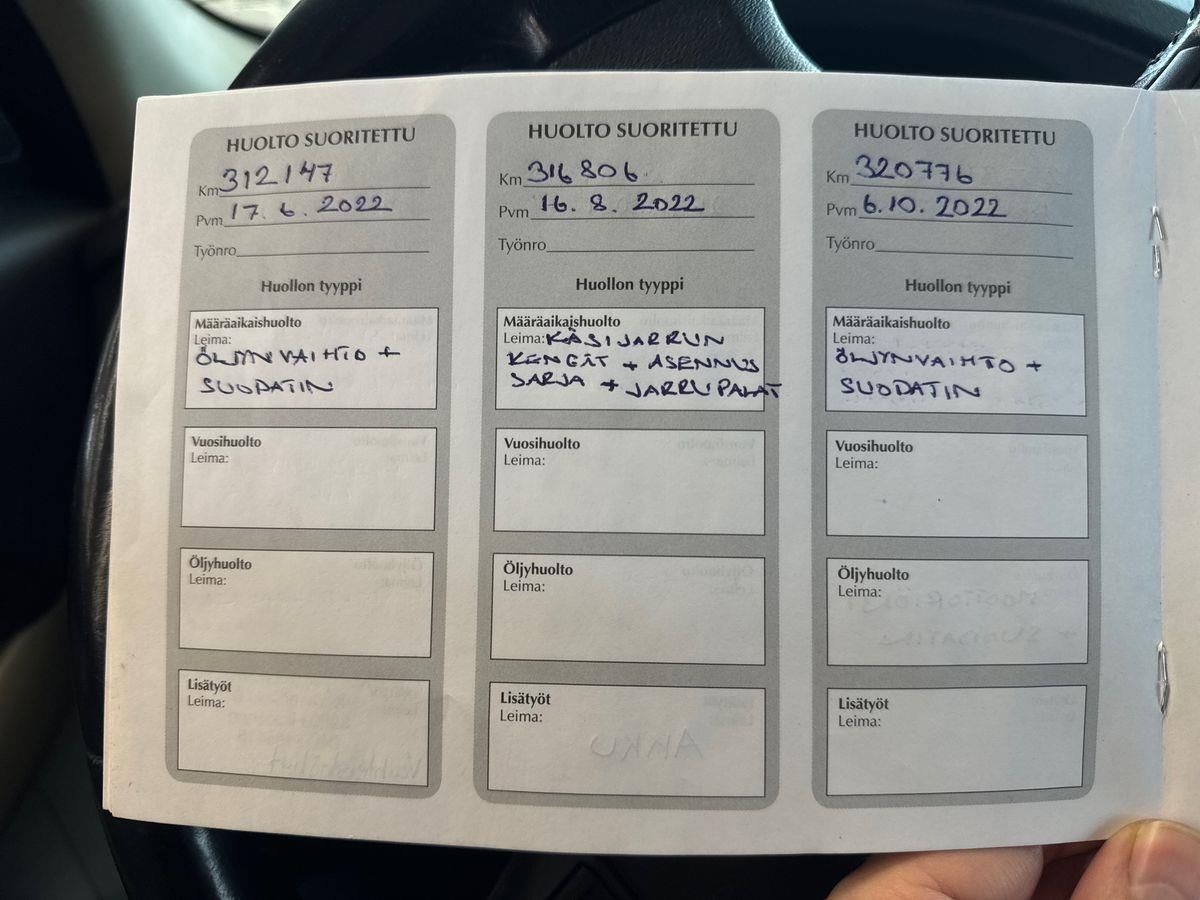 HUOLTO SUORITETTU
Km 312147
Pvm 17. 6. 2022
Työnro
Huollon tyyppi
Määräaikaishuolto
Leima:
ÖLJYNVAIHTO +
SUODATIN
Vuosihuolto
Leima:
Öljyhuolto
Leima:
Lisätyöt
Leima:
HUOLTO SUORITETTU
Km 316806
Pvm 16. 8. 2022
Työnro
Huollon tyyppi
Määräaikaishuolto
Leima: KÄSIJARRUN
KENGÄT + ASENNUS
SARJA + JARRUPALAT
Vuosihuolto
Leima:
Öljyhuolto
Leima:
Lisätyöt
Leima:
HUOLTO SUORITETTU
Km 320776
Pvm 6.10. 2022
Työnro
Huollon tyyppi
Määräaikaishuolto
Leima:
ÖLJYNVAIHTO +
SUODATIN
Vuosihuolto
Leima:
Öljyhuolto
Leima:
Lisätyöt
Leima: